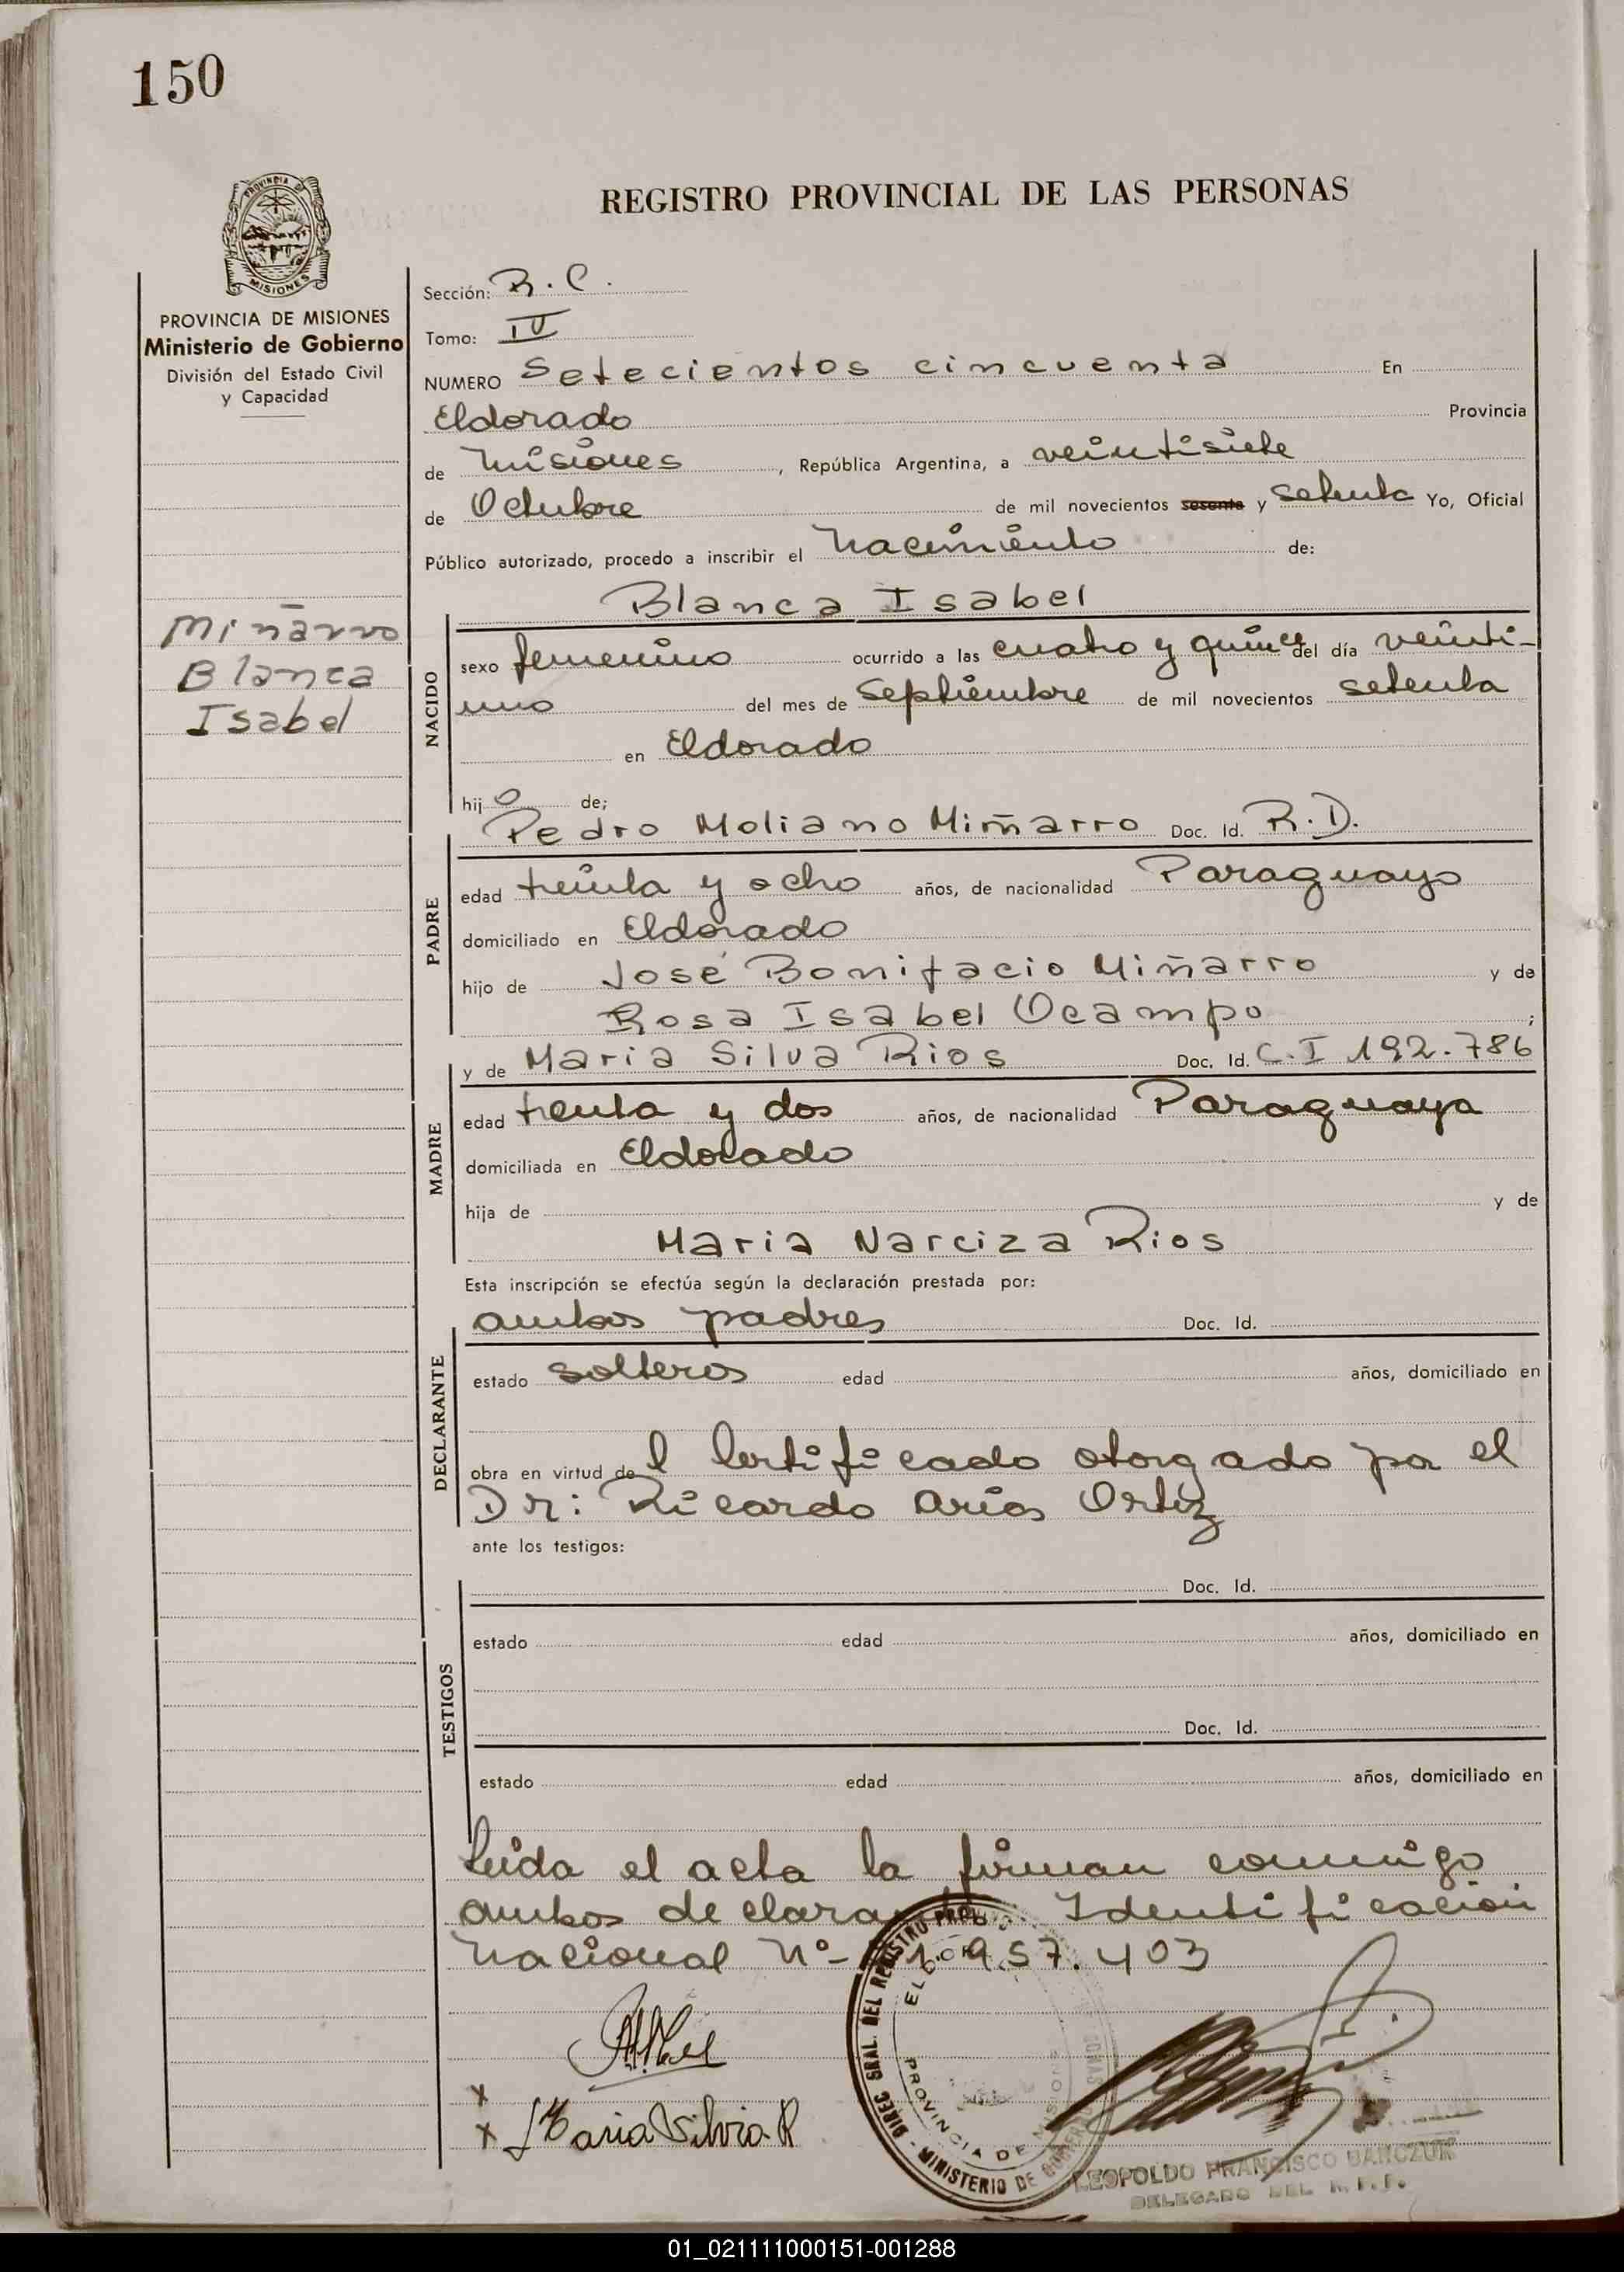 150
REGISTRO PROVINCIAL DE LAS PERSONAS
PROVINCIA DE
MISIONES
PROVINCIA DE MISIONES
Ministerio de Gobierno
División del Estado Civil
y Capacidad
Miñarro
Blanca
Isabel
Sección: R. C.
Tomo: IV
NUMERO Setecientos cincuenta En
Eldorado Provincia
de Misiones, República Argentina, a veintisiete
de Octubre de mil novecientos sesenta y setenta Yo, Oficial
Público autorizado, procedo a inscribir el Nacimiento de:
Blanca Isabel
NACIDO
sexo femenino ocurrido a las cuatro y quince del día veinti-
uno del mes de Septiembre de mil novecientos setenta
en Eldorado
hijo de;
Pedro Moliano Miñarro Doc. Id. R. D.
PADRE
edad treinta y ocho años, de nacionalidad Paraguayo
domiciliado en Eldorado
hijo de José Bonifacio Miñarro y de
Rosa Isabel Ocampo ;
y de Maria Silva Rios Doc. Id. C.I 192.786
MADRE
edad treinta y dos años, de nacionalidad Paraguaya
domiciliada en Eldorado
hija de y de
Maria Narciza Rios
Esta inscripción se efectúa según la declaración prestada por:
ambos padres Doc. Id.
DECLARANTE
estado solteros edad años, domiciliado en
obra en virtud del Certificado otorgado por el
Dr: Ricardo Arias Ortiz
ante los testigos:
TESTIGOS
Doc. Id.
estado edad años, domiciliado en
Doc. Id.
estado edad años, domiciliado en
Leida el acta la firman conmigo
ambos Identificación
Nacional Nº 957.403
DIREC. GRAL. DEL REGISTRO - MINISTERIO DE
PROVINCIA DE MISIONES
x
x Maria Silvia R
LEOPOLDO FRANCISCO BANCZUR
DELEGADO DEL
01_021111000151-001288